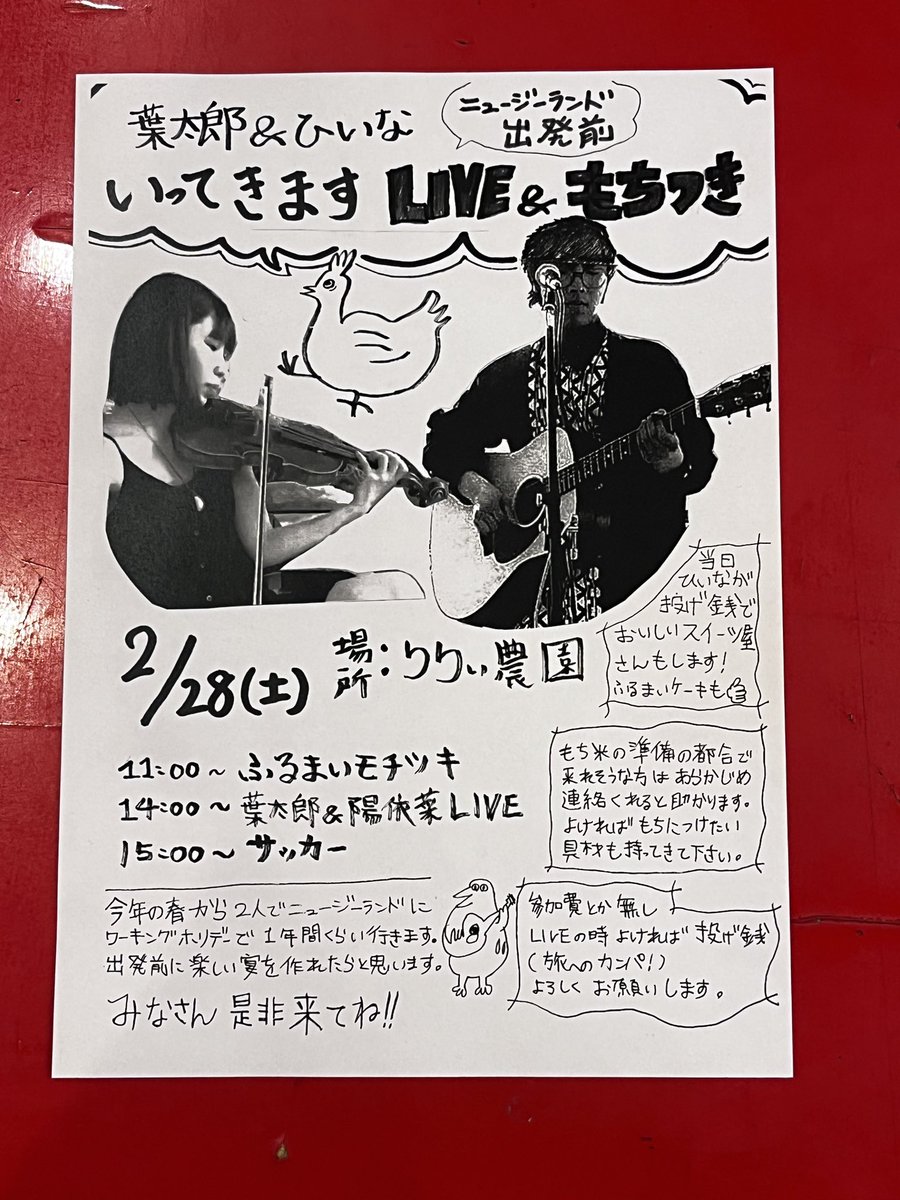 葉太郎&ひいな
ニュージーランド
出発前
いってきます LIVE & もちつき
2/28(土)
場所:りりぃ農園
当日
ひいなが
投げ銭で
おいしいスイーツ屋
さんもします!
ふるまいケーキも
11:00~ ふるまいモチツキ
14:00~ 葉太郎&陽依菜LIVE
15:00~ サッカー
もち米の準備の都合で
来れそうな方はあらかじめ
連絡くれると助かります。
よければもちにつけたい
具材も持ってきて下さい。
今年の春から2人でニュージーランドに
ワーキングホリデーで1年間くらい行きます。
出発前に楽しい宴を作れたらと思います。
みなさん是非来てね!!
参加費とか無し
LIVEの時よければ投げ銭
(旅へのカンパ!)
よろしくお願いします。